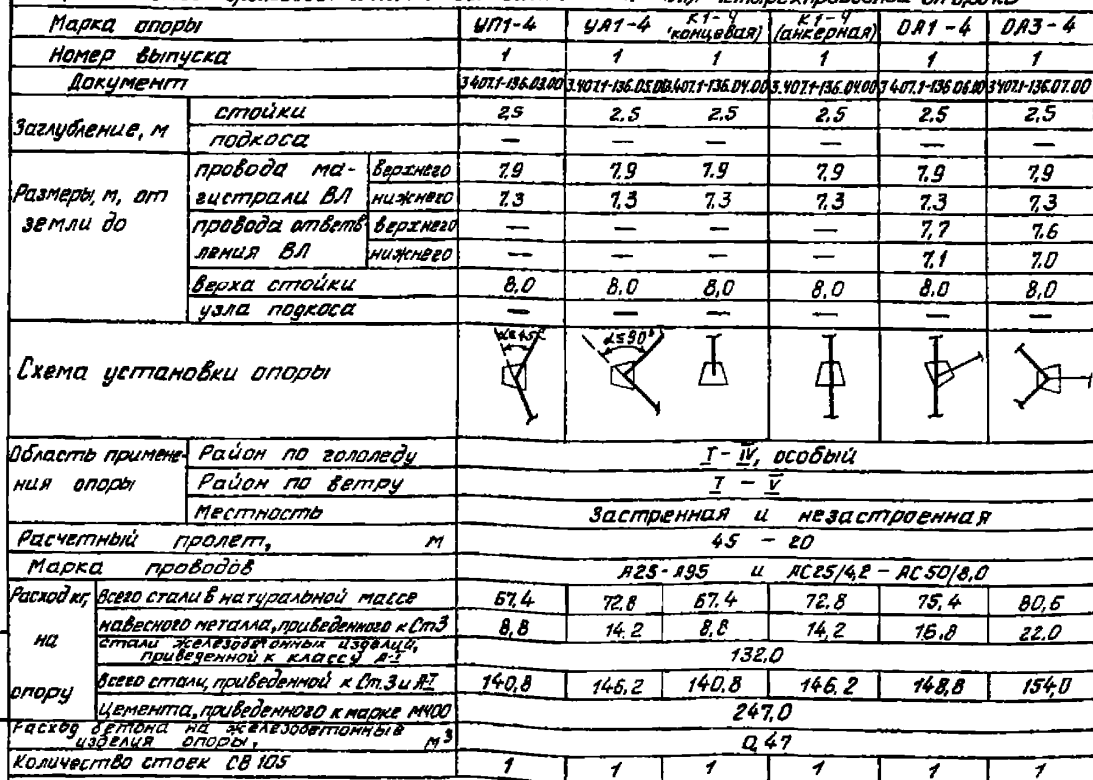 четырехпроводной
Марка опоры УП1-4 УА1-4 К1-4 (концевая) К1-4 (анкерная) ОА1-4 ОА3-4
Номер выпуска 1 1 1 1 1 1
Документ 3.407.1-136.03.00 3.407.1-136.05.00 3.407.1-136.04.00 3.407.1-136.04.00 3.407.1-136.06.00 3.407.1-136.07.00
Заглубление, м
стойки 2,5 2,5 2,5 2,5 2,5 2,5
подкоса — — — — — —
Размеры, м, от земли до
провода магистрали ВЛ
верхнего 7,9 7,9 7,9 7,9 7,9 7,9
нижнего 7,3 7,3 7,3 7,3 7,3 7,3
провода ответвления ВЛ
верхнего — — — — 7,7 7,6
нижнего — — — — 7,1 7,0
верха стойки 8,0 8,0 8,0 8,0 8,0 8,0
узла подкоса — — — — — —
Схема установки опоры α≤45° α≤90°
Область применения опоры
Район по гололеду I-IV, особый
Район по ветру I - V
Местность Застренная и незастроенная
Расчетный пролет, м 45 - 20
Марка проводов А25-А95 и АС25/4,2 - АС50/8,0
Расход кг, на опору
Всего стали в натуральной массе 67,4 72,8 67,4 72,8 75,4 80,6
навесного металла, приведенного к Ст3 8,8 14,2 8,8 14,2 16,8 22,0
стали железобетонных изделий, приведенной к классу А-I 132,0
Всего стали, приведенной к Ст.3 и А-I 140,8 146,2 140,8 146,2 148,8 154,0
Цемента, приведенного к марке М400 247,0
Расход бетона на железобетонные изделия опоры, м³ 0,47
Количество стоек СВ 105 1 1 1 1 1 1